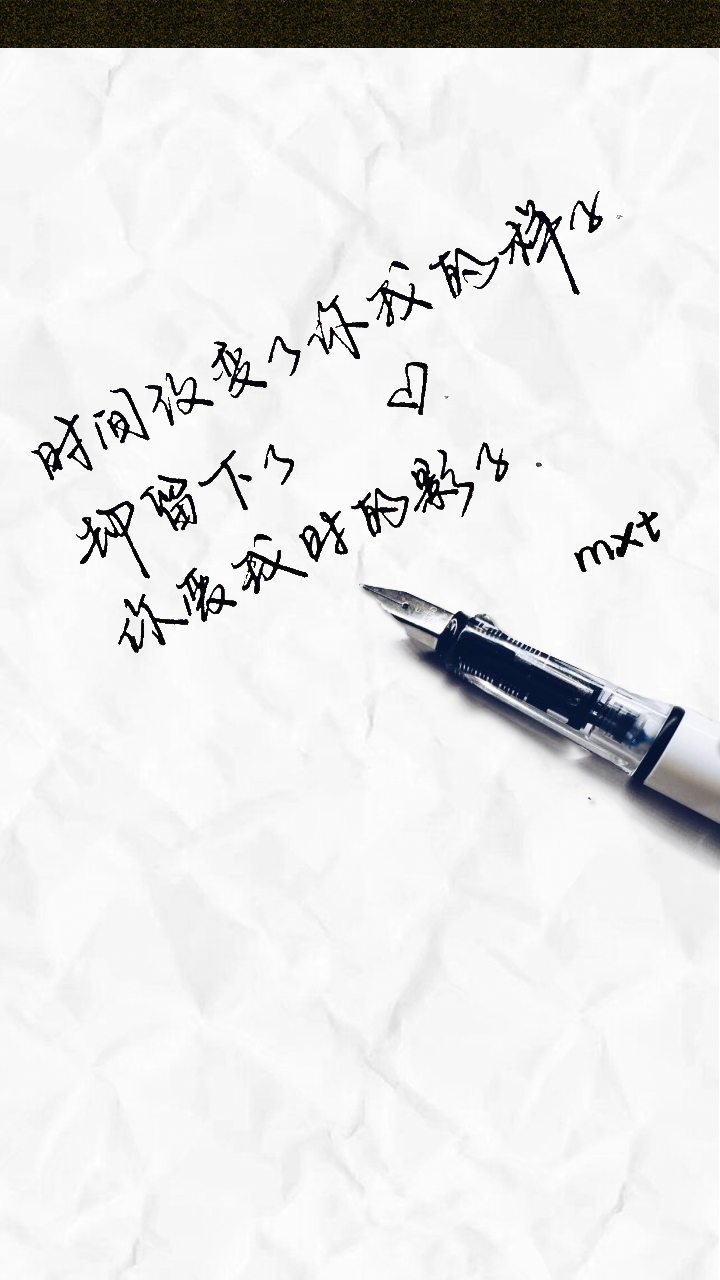 时间改变了你我的样子
却留下了
你爱我时的影子
mxt